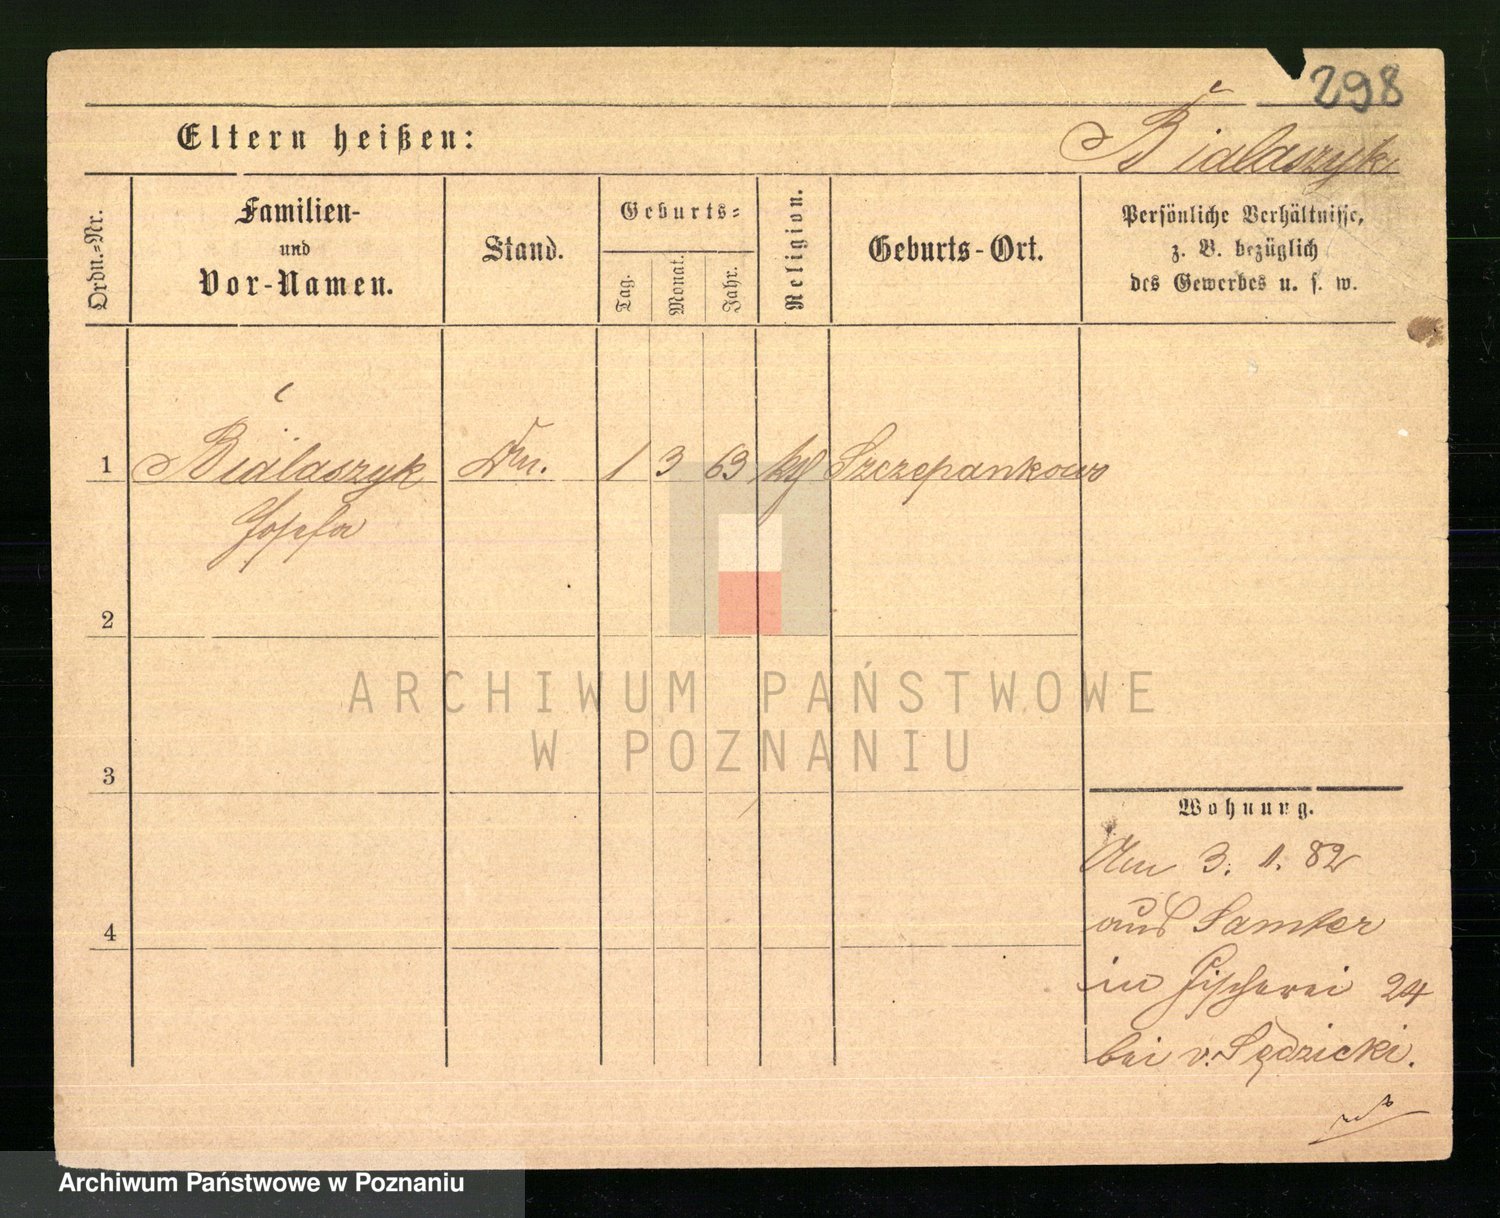 298
Eltern heißen:
Bialaszyk
Ordn.-Nr.
Familien-
und
Vor-Namen.
Stand.
Geburts-
Tag.
Monat.
Jahr.
Religion.
Geburts-Ort.
Persönliche Verhältnisse,
z. B. bezüglich
des Gewerbes u. s. w.
1 Bialaszyk 1 3 63 Szczepankowo
Josefa
2
3
4
ARCHIWUM PAŃSTWOWE
W POZNANIU
Wohnung.
Am 3. 82
aus Samter
in Fischerei 24
bei v. Sędzicki.
Archiwum Państwowe w Poznaniu